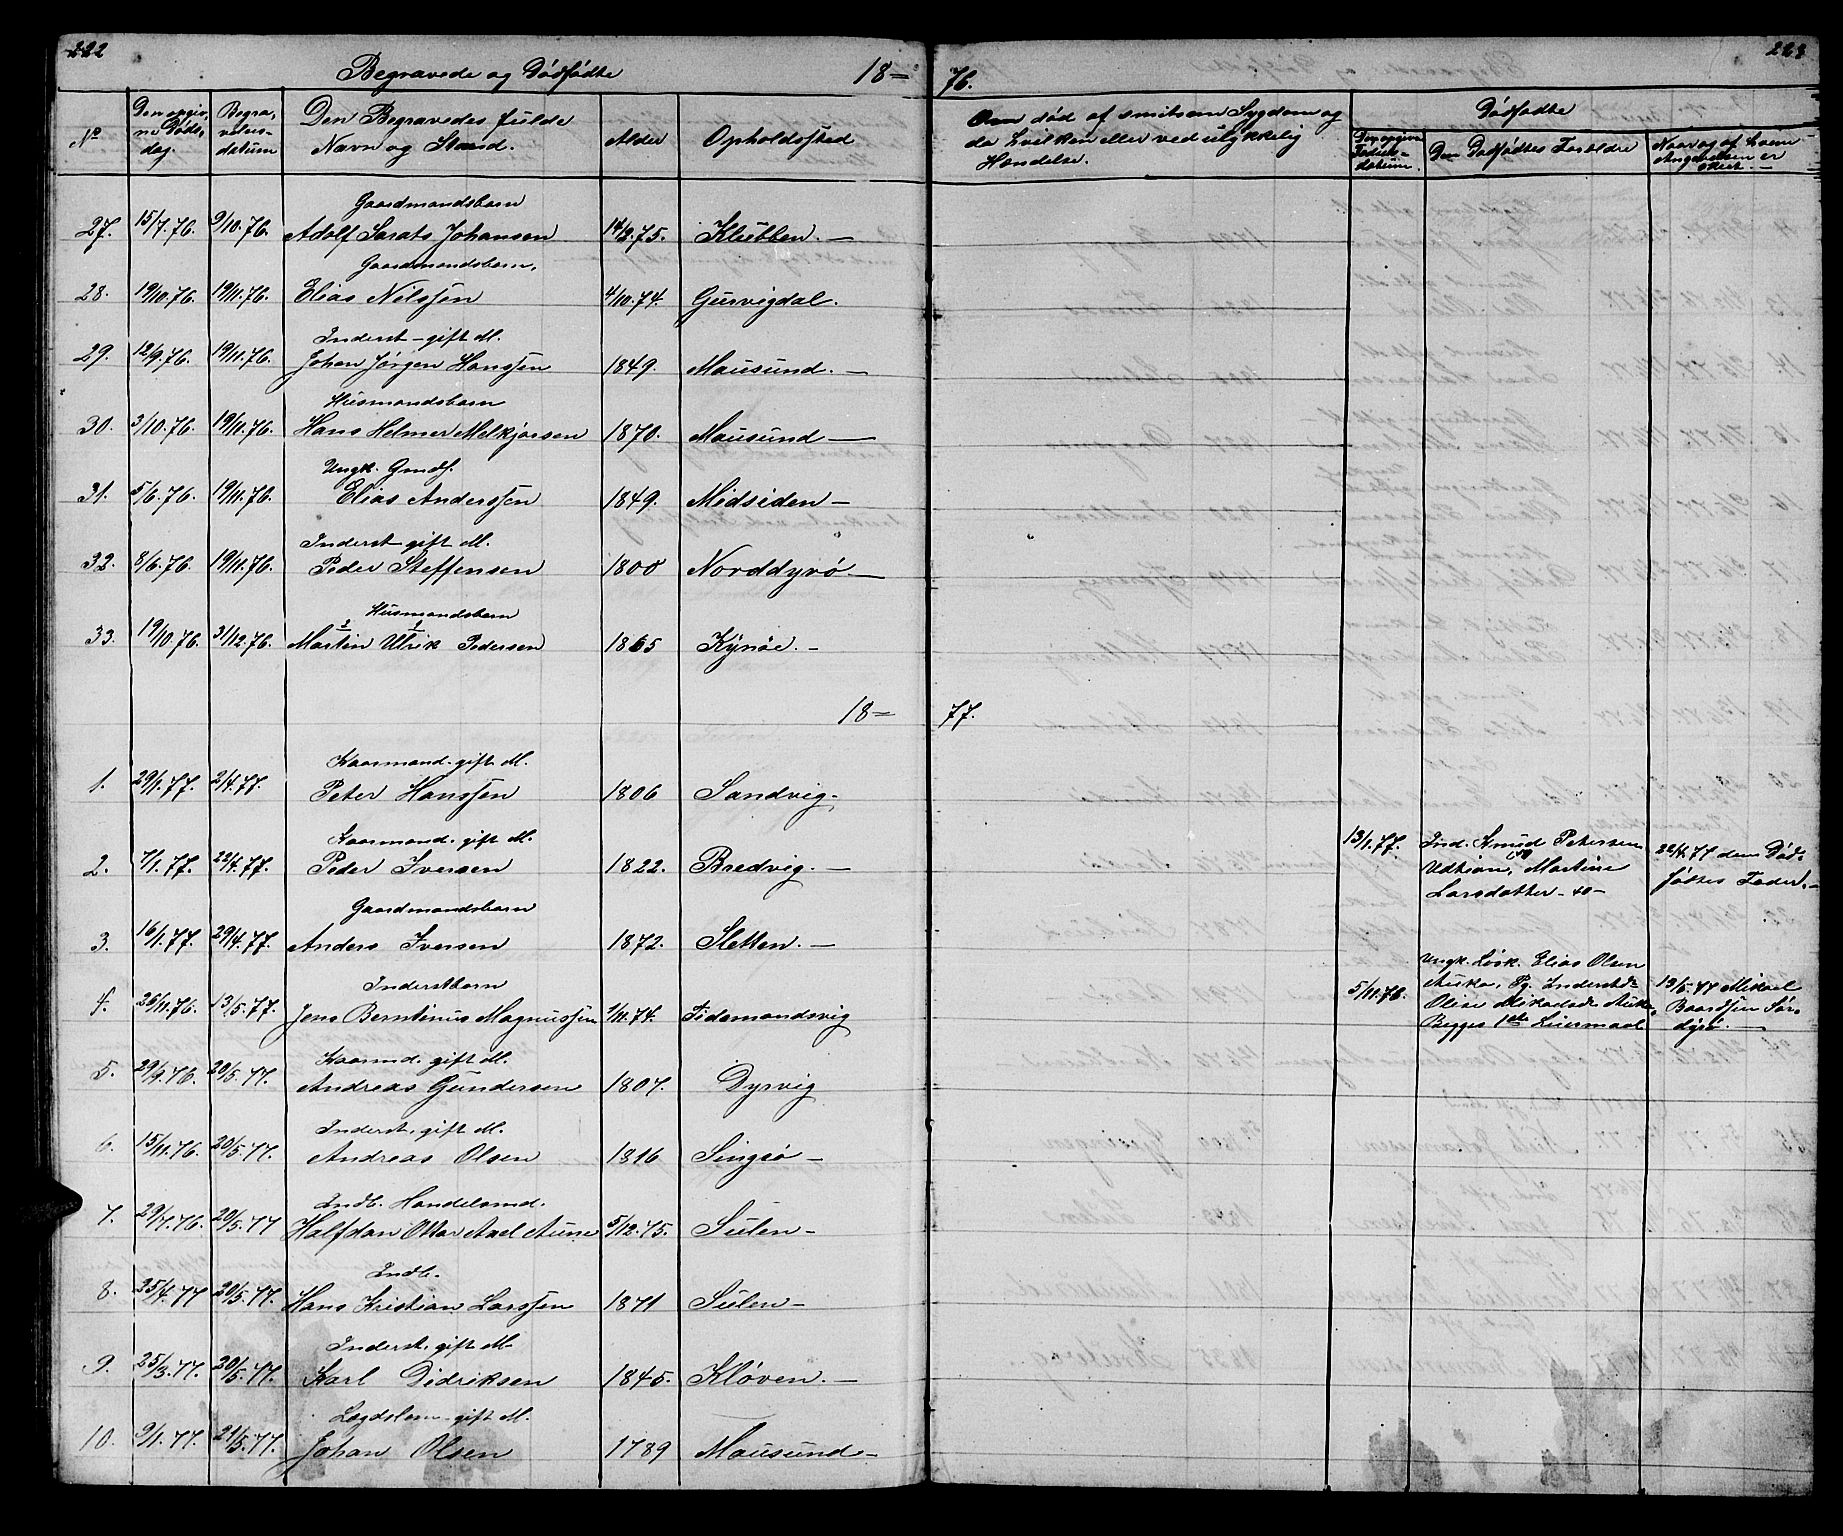 222
Begravede og Dødfødte 18-
No
Den opgiv,
ne Døds,
dag.
Begra,
velses-
datum
Den Begravedes fulde
Navn og Stand.
Alder
Opholdssted
27. 15/7.76. 9/10.76. Gaardmandsbarn
Adolf Sarats Johansen 14/2.75. Klubben. -
28. 19/10.76. 19/11.76. Gaardmandsbarn,
Elias Nilssen 4/10.74. Gurvigdal.
29. 12/9.76. 19/11.76. Inderst - gift M.
Johan Jørgen Hanssen 1849. Mausund. -
30. 3/10.76. 19/11.76. Husmandsbarn
Hans Helmer Melkjorsen 1870. Mausund -
31. 5/6.76. 19/11.76. Ungk. Gmds.
Elias Anderssen 1849. Midsiden -
32. 8/6.76. 19/11.76. Inderst - gift M.
Peder Steffensen 1800 Norddyrø -
33. 19/10.76. 31/12.76. Husmandsbarn
Martin Ulrik Pedersen 1865 Kynøe. -
18-
1. 29/1.77. 2/4.77. Kaarmand - gift M.
Peter Hanssen 1806 Sandvig.
2. 7/1.77. 22/4.77. Kaarmand. gift M.
Peder Iversen 1822. Bredvig. -
3. 16/1.77. 29/4.77. Gaardmandsbarn
Anders Iversen 1872. Sletten. -
4. 26/11.76. 13/5.77. Inderstbarn
Jens Berntinus Magnussen 1/11.74. Tidemandsvig
5. 29/9.76. 20/5.77. Kaarmd. gift M.
Andreas Gundersen 1807. Dyrvig
6. 15/11.76. 20/5.77. Inderst, gift M.
Andreas Olsen 1816 Singsø -
7. 29/7.76. 20/5.77 Indb. Handelsmd.
Halfdan Ottar Axel Aune 5/12.75. Sulen -
8. 25/4.77 20/5.77. Indb.
Hans Kristian Larssen 1871 Sulen -
9. 25/3.77. 20/5.77. Inderst, gift M.
Karl Didriksen 1845. Kløven. -
10. 9/1.77. 21/5.77. Lægdslem - gift M.
Johan Olsen 1789 Mausund -
223
76.
Om død af smitsom Sygdom og
da hvilken eller ved ulykkelig
Hændelse.
Dødfødte
Den opgivne
Fødsels-
datum.
Den Dødfødtes Forældre
Naar og af hvem
Angivelsen er
skeet. -
77.
13/1.77. Ind. Knud Petersen
Udtian, og Martine
Larsdatter - do -
22/4.77 den Død-
fødtes Fader. -
5/11.76. Ungk. Løsk. Elias Olsen
Auka, Pg. Inderstd.
Oline Mikaelsd. Auka,
Begges 1ste Leiermaal
13/5.77 Mikael
Baardsen Sør-
dyrø. -